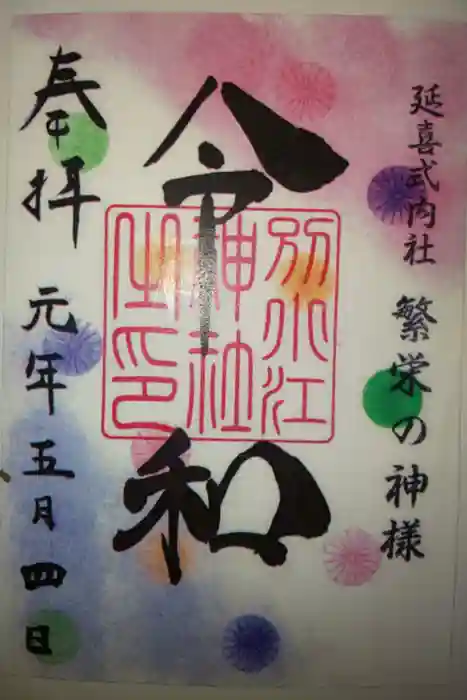 延喜式内社 繁栄の神様
令和
別小江
神社
之印
奉拝 元年五月四日